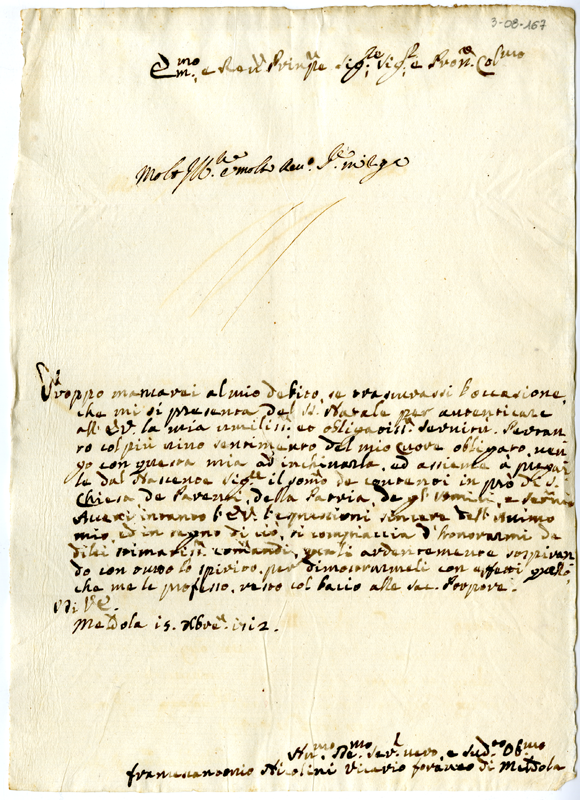 3-08-167
Em.mo e Rev.mo Prin.pe Sig.re Sig.re e Pron. Col.mo
Molt Ill.re e molto Rev.o
Troppo mancarei al mio debito, se trascurassi l'occasione,
che mi si presenta del S. Natale per autenticare
all'E.V. la mia umiliss. et obligatiss. servitù. Pertan
to col più vivo sentimento del mio Cuore obligato, ven
go con questa mia ad inchinarla, ed assieme a pregar
le dal Nascente Sig.re il somo de contenti in prò di S.
Chiesa de Parenti, della Patria, de gl'Uomini, e
intanto l'E.V. l'espressioni sincere dell'Animo
mio, ed in segno di ciò, si compiaccia d'honorarmi de
di lei stimatiss. comandi, quali ardentemente sospiran
do con tutto lo spirito, per dimostrarmeli con effetti
che me le professo, resto col bacio alle Sac. Porpore.
Di V.E.
Meldola 15. Xbre 1712.
Um.mo De.mo Ser.e vero, e Obb.mo
Francescantonio Nicolini Vicario foraneo di Meldola